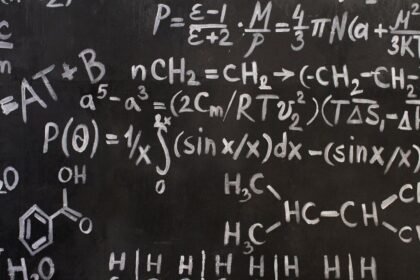 P = ε-1/ε+2 · M/P = 4/3 πN(a + μ²/3KT
c
=AT+B
nCH₂=CH₂→(-CH₂-CH₂
a⁵-a³=(2Cₘ/RTυ₂²)(TΔS₁-Δ
P(Θ)=1/x ∫ (sin x/x)dx-(sin x/x
0
OH
O
H₃C
HC-CH
H₃C
H₂O
H H H H H H H H